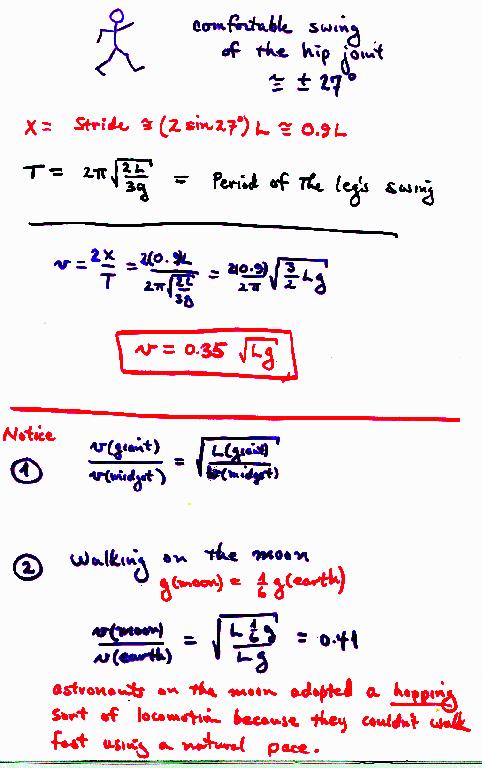 comfortable swing
of the hip joint
≅ ± 27°
X = Stride ≅ (2 sin 27°) L ≅ 0.9L
T = 2π √(2L/3g) = Period of the leg's swing
v = 2X/T = 2(0.9)L / 2π√(2L/3g) = 2(0.9)/2π √(3/2 Lg)
v = 0.35 √Lg
Notice
① v(giant)/v(midget) = √(L(giant)/L(midget))
② Walking on the moon
g(moon) = 1/6 g(earth)
v(moon)/v(earth) = √(L 1/6 g / Lg) = 0.41
astronauts on the moon adopted a hopping
sort of locomotion because they couldn't walk
fast using a natural pace.